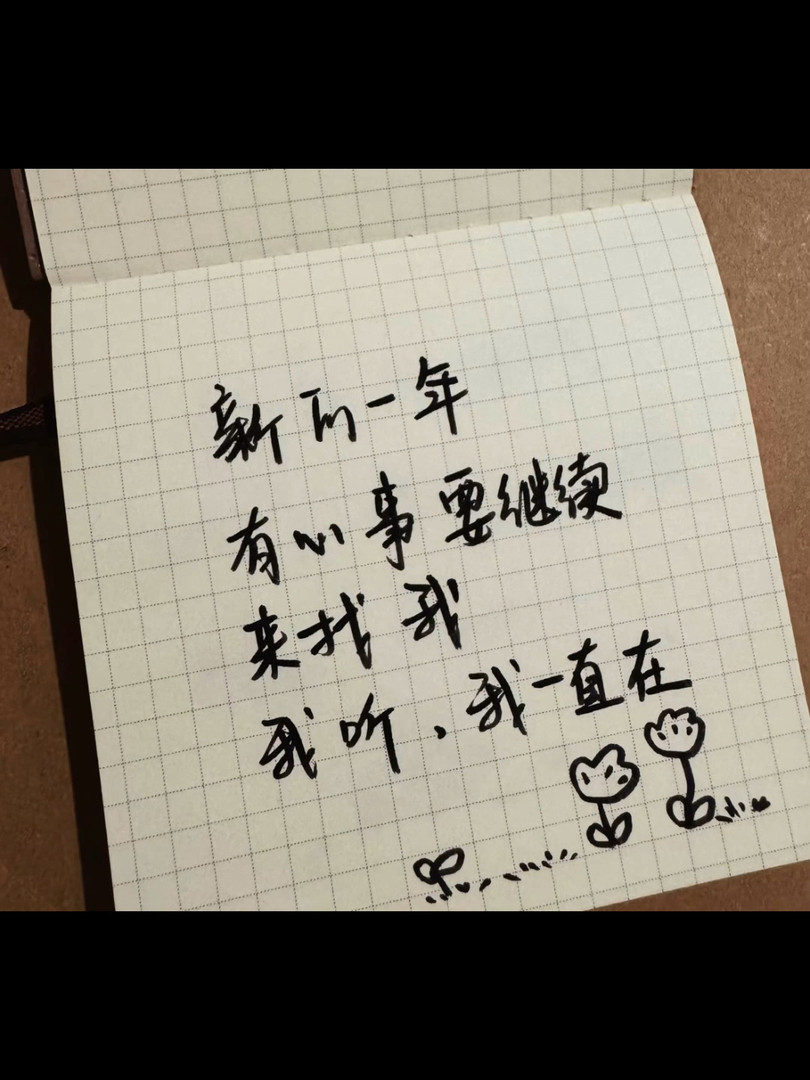 新的一年
有心事要继续
来找我
我听、我一直在